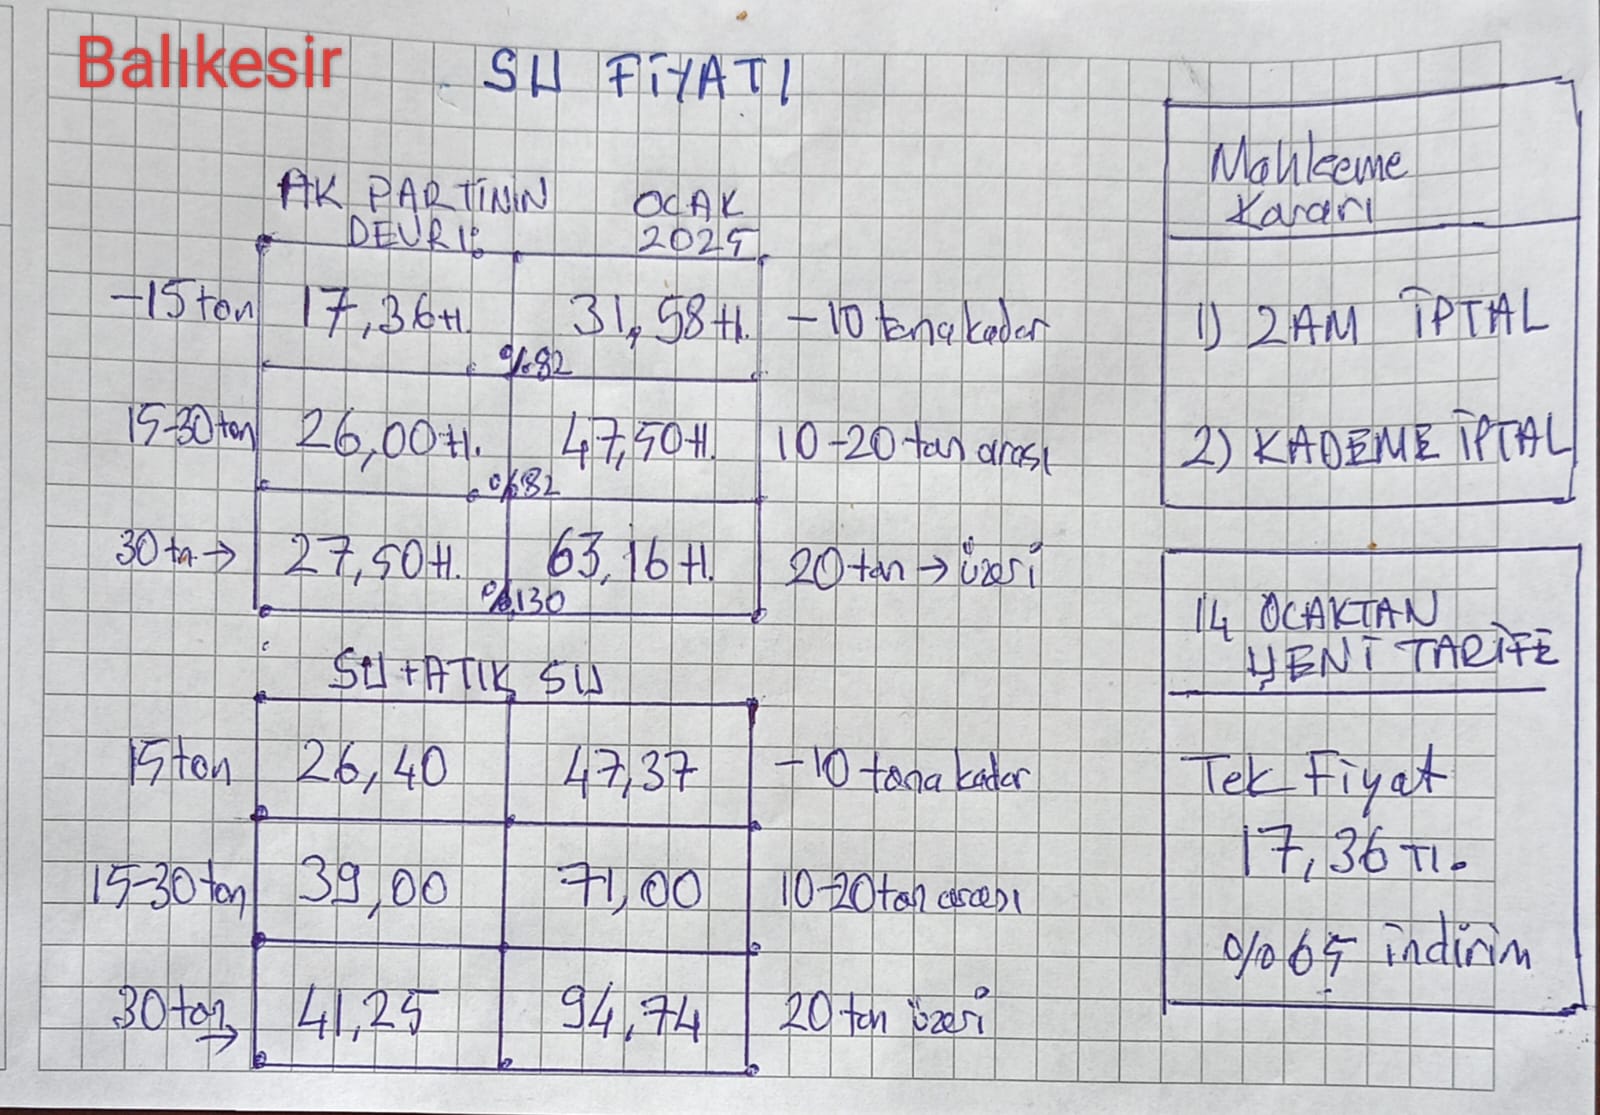 Balıkesir
SU FİYATI
AK PARTİNİN
DEVRİ
OCAK
2025
-15 ton
17,36 tl.
31,58 tl.
-10 tona kadar
%82
15-30 ton
26,00 tl.
47,50 tl.
10-20 ton arası
%82
30 tn →
27,50 tl.
63,16 tl.
20 ton → üzeri
%130
SU + ATIK SU
15 ton
26,40
47,37
-10 tona kadar
15-30 ton
39,00
71,00
10-20 ton arası
30 ton →
41,25
94,74
20 ton üzeri
Mahkeme
Kararı
1) ZAM İPTAL
2) KADEME İPTAL
14 OCAKTAN
YENİ TARİFE
Tek Fiyat
17,36 Tl.
%65 indirim